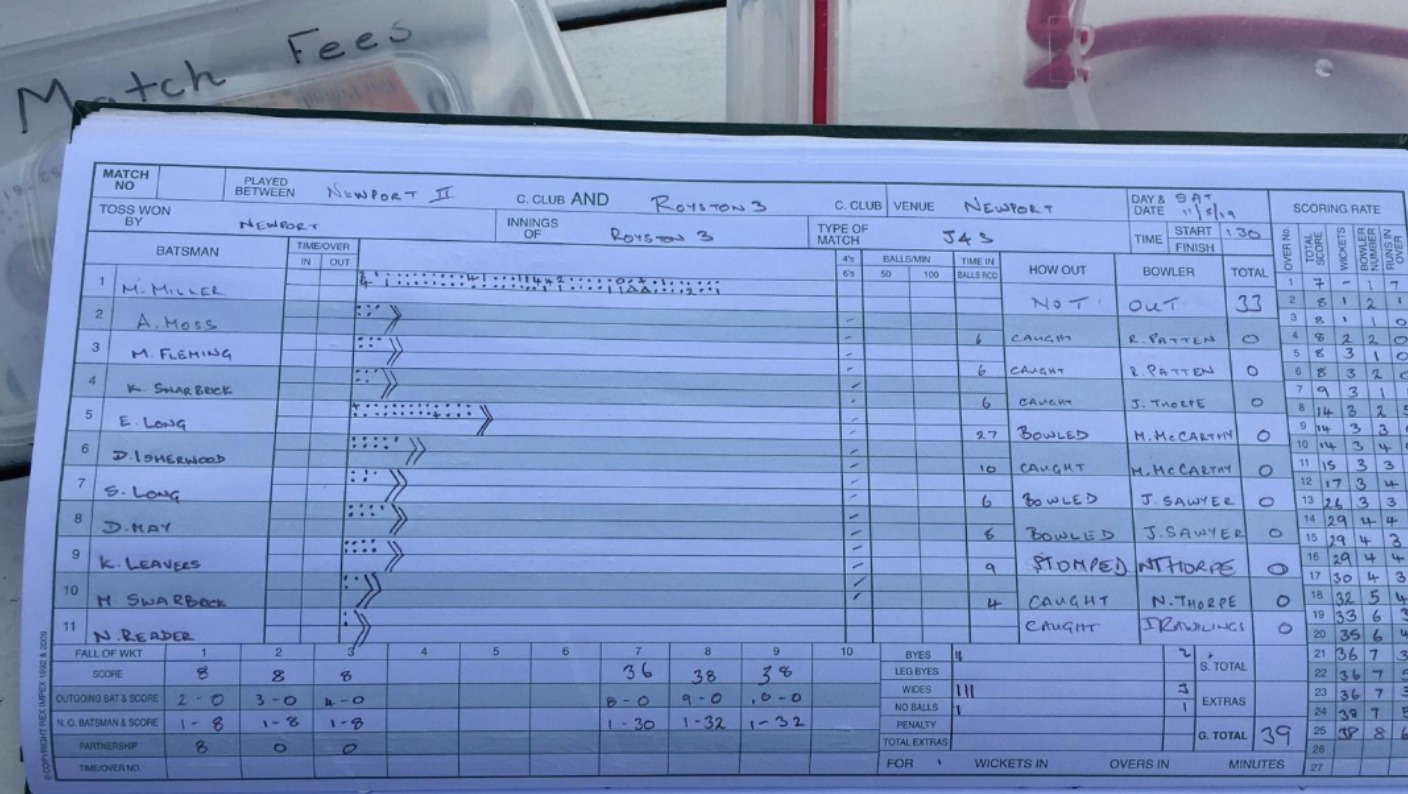 Match Fees
MATCH NO PLAYED BETWEEN NEWPORT II C. CLUB AND ROYSTON 3 C. CLUB VENUE NEWPORT DAY & DATE SAT 11/5/19 SCORING RATE
TOSS WON BY NEWPORT INNINGS OF ROYSTON 3 TYPE OF MATCH J4S TIME START 1 30 FINISH
BATSMAN TIME/OVER IN OUT 4's 6's BALLS/MIN 50 100 TIME IN BALLS RCD HOW OUT BOWLER TOTAL OVER No. TOTAL SCORE WICKETS BOWLER NUMBER RUNS IN OVER
1 M. MILLER NOT OUT 33
2 A. MOSS 6 CAUGHT R. PATTEN 0
3 M. FLEMING 6 CAUGHT R. PATTEN 0
4 K. SWARBRICK 6 CAUGHT J. THORPE 0
5 E. LONG 27 BOWLED M. McCARTHY 0
6 D. ISHERWOOD 10 CAUGHT M. McCARTHY 0
7 S. LONG 6 BOWLED J. SAWYER 0
8 D. MAY 8 BOWLED J. SAWYER 0
9 K. LEAVERS 9 STOMPED N THORPE 0
10 M. SWARBRICK 4 CAUGHT N. THORPE 0
11 N. READER CAUGHT J RAWLINGS 0
1 7 - 1 7
2 8 1 2 1
3 8 1 1 0
4 8 2 2 0
5 8 3 1 0
6 8 3 2 0
7 9 3 1 1
8 14 3 2 5
9 14 3 3
10 14 3 4
11 15 3 3
12 17 3 4
13 26 3 3
14 29 4 4
15 29 4 3
16 29 4 4
17 30 4 3
18 32 5 4
19 33 6 3
20 35 6 4
21 36 7 3
22 36 7 5
23 36 7 3
24 38 7 5
25 38 8 6
26
27
FALL OF WKT 1 2 3 4 5 6 7 8 9 10
SCORE 8 8 8 36 38 38
OUTGOING BAT & SCORE 2-0 3-0 4-0 8-0 9-0 10-0
N. O. BATSMAN & SCORE 1-8 1-8 1-8 1-30 1-32 1-32
PARTNERSHIP 8 0 0
TIME/OVER NO.
BYES 2 S. TOTAL
LEG BYES
WIDES 3 EXTRAS
NO BALLS 1
PENALTY
TOTAL EXTRAS G. TOTAL 39
FOR WICKETS IN OVERS IN MINUTES
© COPYRIGHT REX IMPEX 1992 & 2009